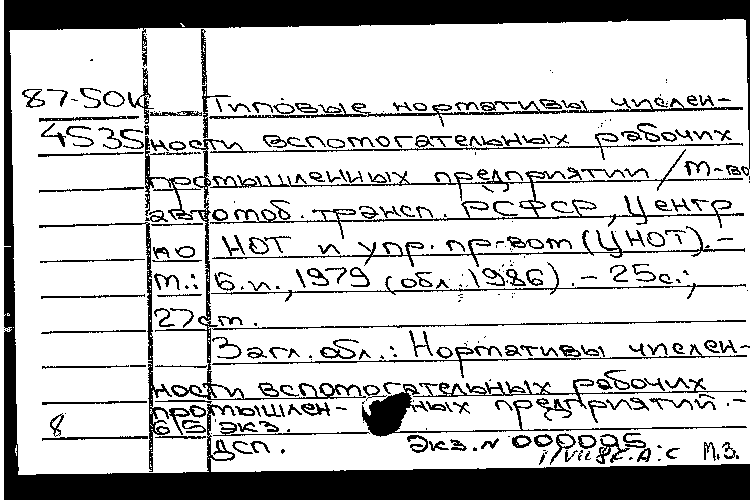 87-50к Типовые нормативы числен-
4535 ности вспомогательных рабочих
промышленных предприятий / М-во
автомоб. трансп. РСФСР, Центр
по НОТ и упр. пр-вом (ЦНОТ). -
М.: Б.и., 1979 (обл. 1986). - 25с.;
27см.
Загл. обл.: Нормативы числен-
ности вспомогательных рабочих
промышлен- ных предприятий. -
8 б/б экз.
ДСП. Экз. N 000005
М.З.